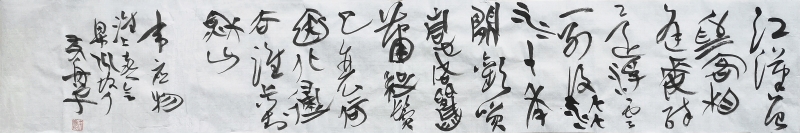 江漢曾
為客相
逢每醉
還浮雲
一別後流
水十年
間歡笑
情如舊
蕭疏鬢
已斑何
因北歸
去淮上對
秋山
韋應物
淮上喜會
梁川故人